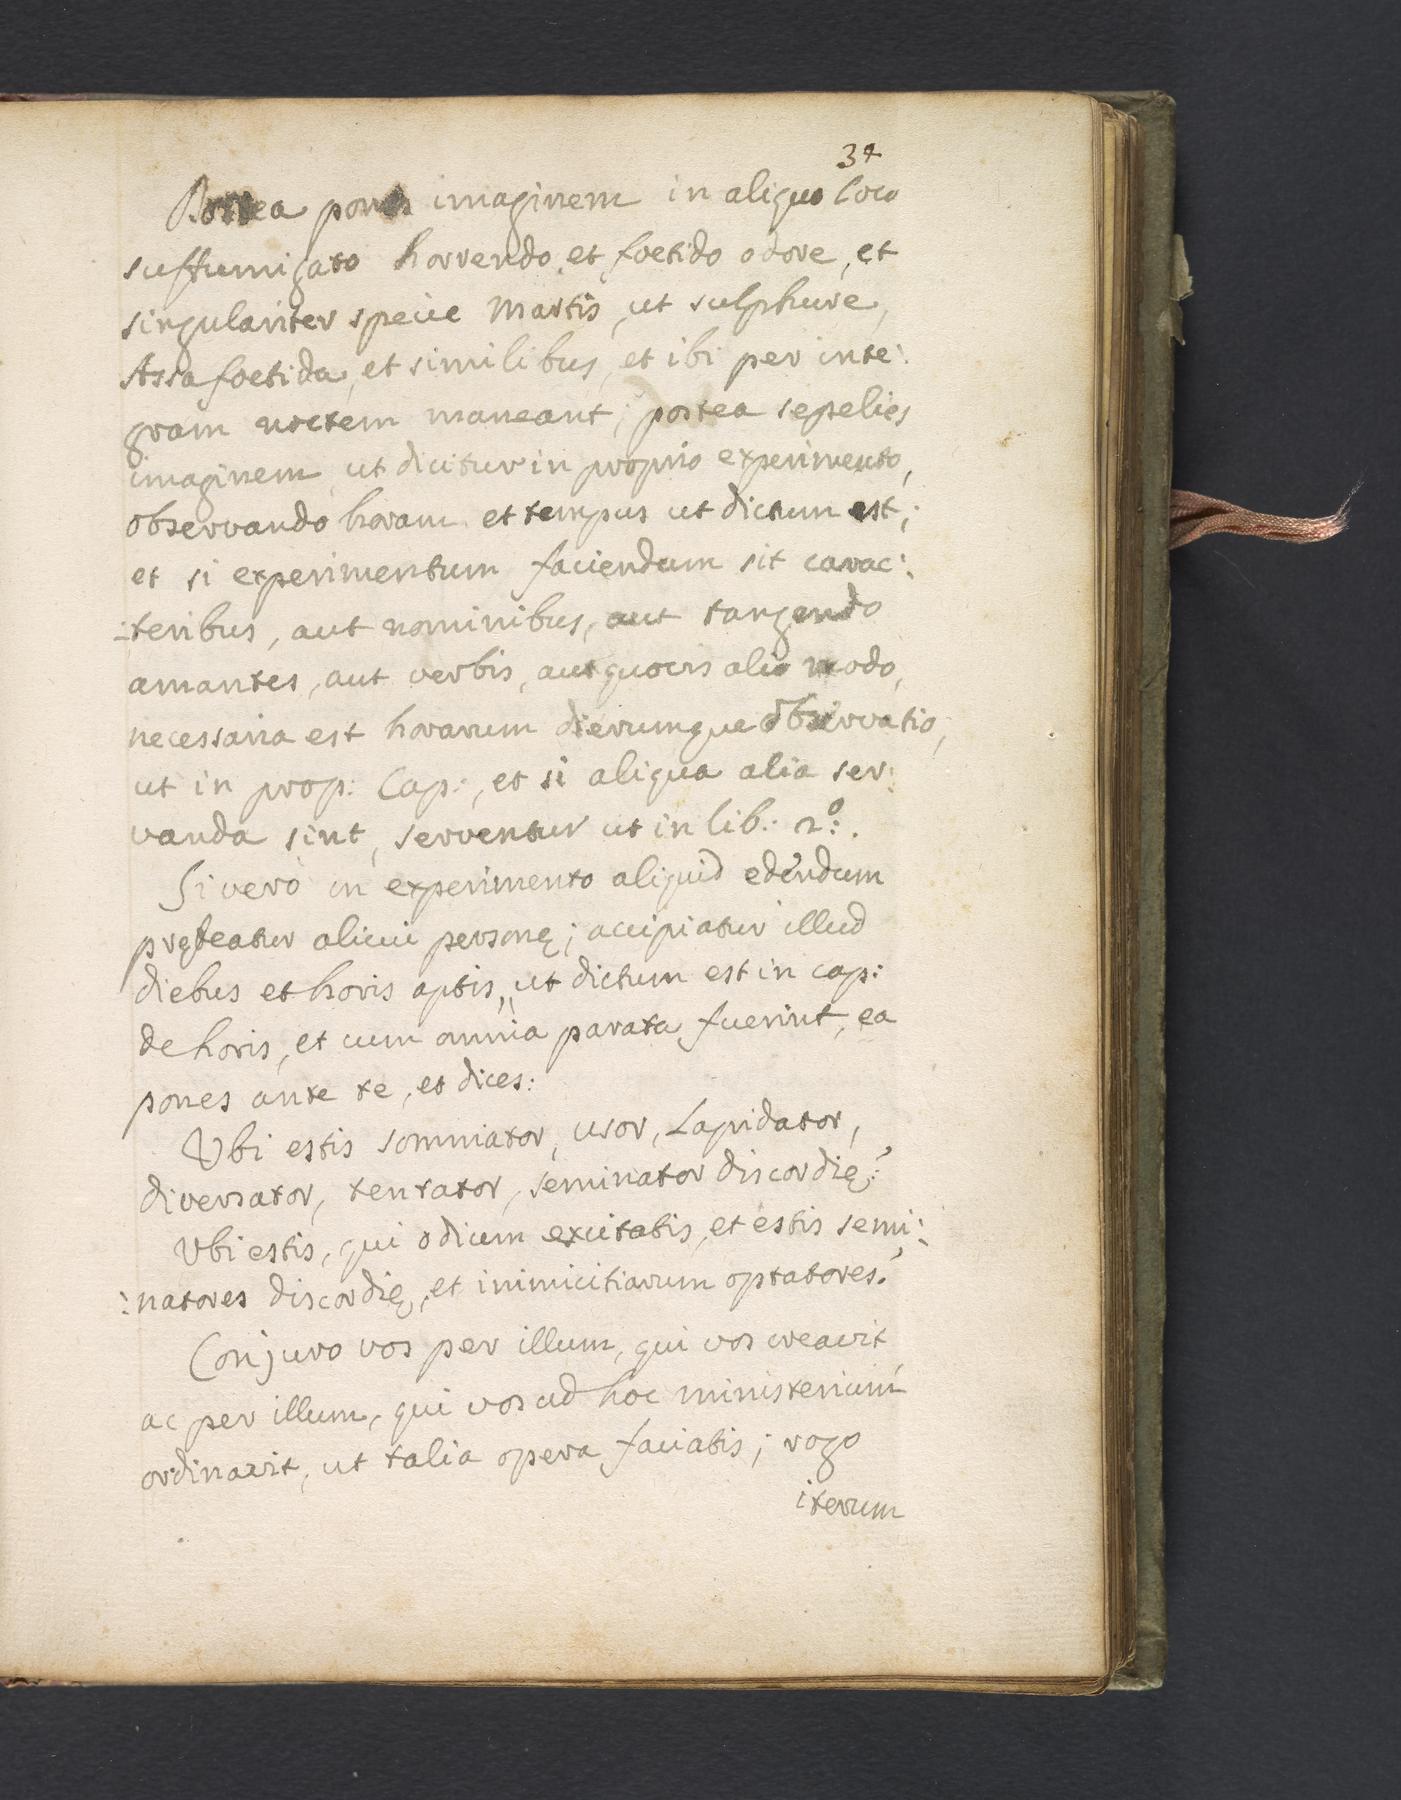 34
Postea pones imaginem in aliquo loco
suffumigato horrendo, et foetido odore, et
singulariter specie Martis, ut sulphure,
Assa foetida, et similibus, et ibi per inte:
gram noctem maneant; postea sepelies
imaginem, ut dicitur in proprio experimento,
observando horam et tempus ut dictum est;
et si experimentum faciendum sit carac:
:teribus, aut nominibus, aut tangendo
amantes, aut verbis, aut quovis alio modo,
necessaria est horarum dierumque observatio,
ut in prop: Cap:, et si aliqua alia ser:
vanda sint, serventur ut in lib: 2º:.
Si verò in experimento aliquid edendum
prębeatur alicui personę; accipiatur illud
diebus et horis aptis, ut dictum est in cap:
de horis, et cum omnia parata fuerint, ea
pones ante te, et dices:
Ubi estis somniator, usor, Lapidator,
diversator, tentator, seminator discordię?
Vbi estis, qui odium excitatis, et estis semi:
:natores discordię, et inimicitiarum optatores?
Conjuro vos per illum, qui vos creavit
ac per illum, qui vos ad hoc ministerium
ordinavit, ut talia opera faciatis; rogo
iterum